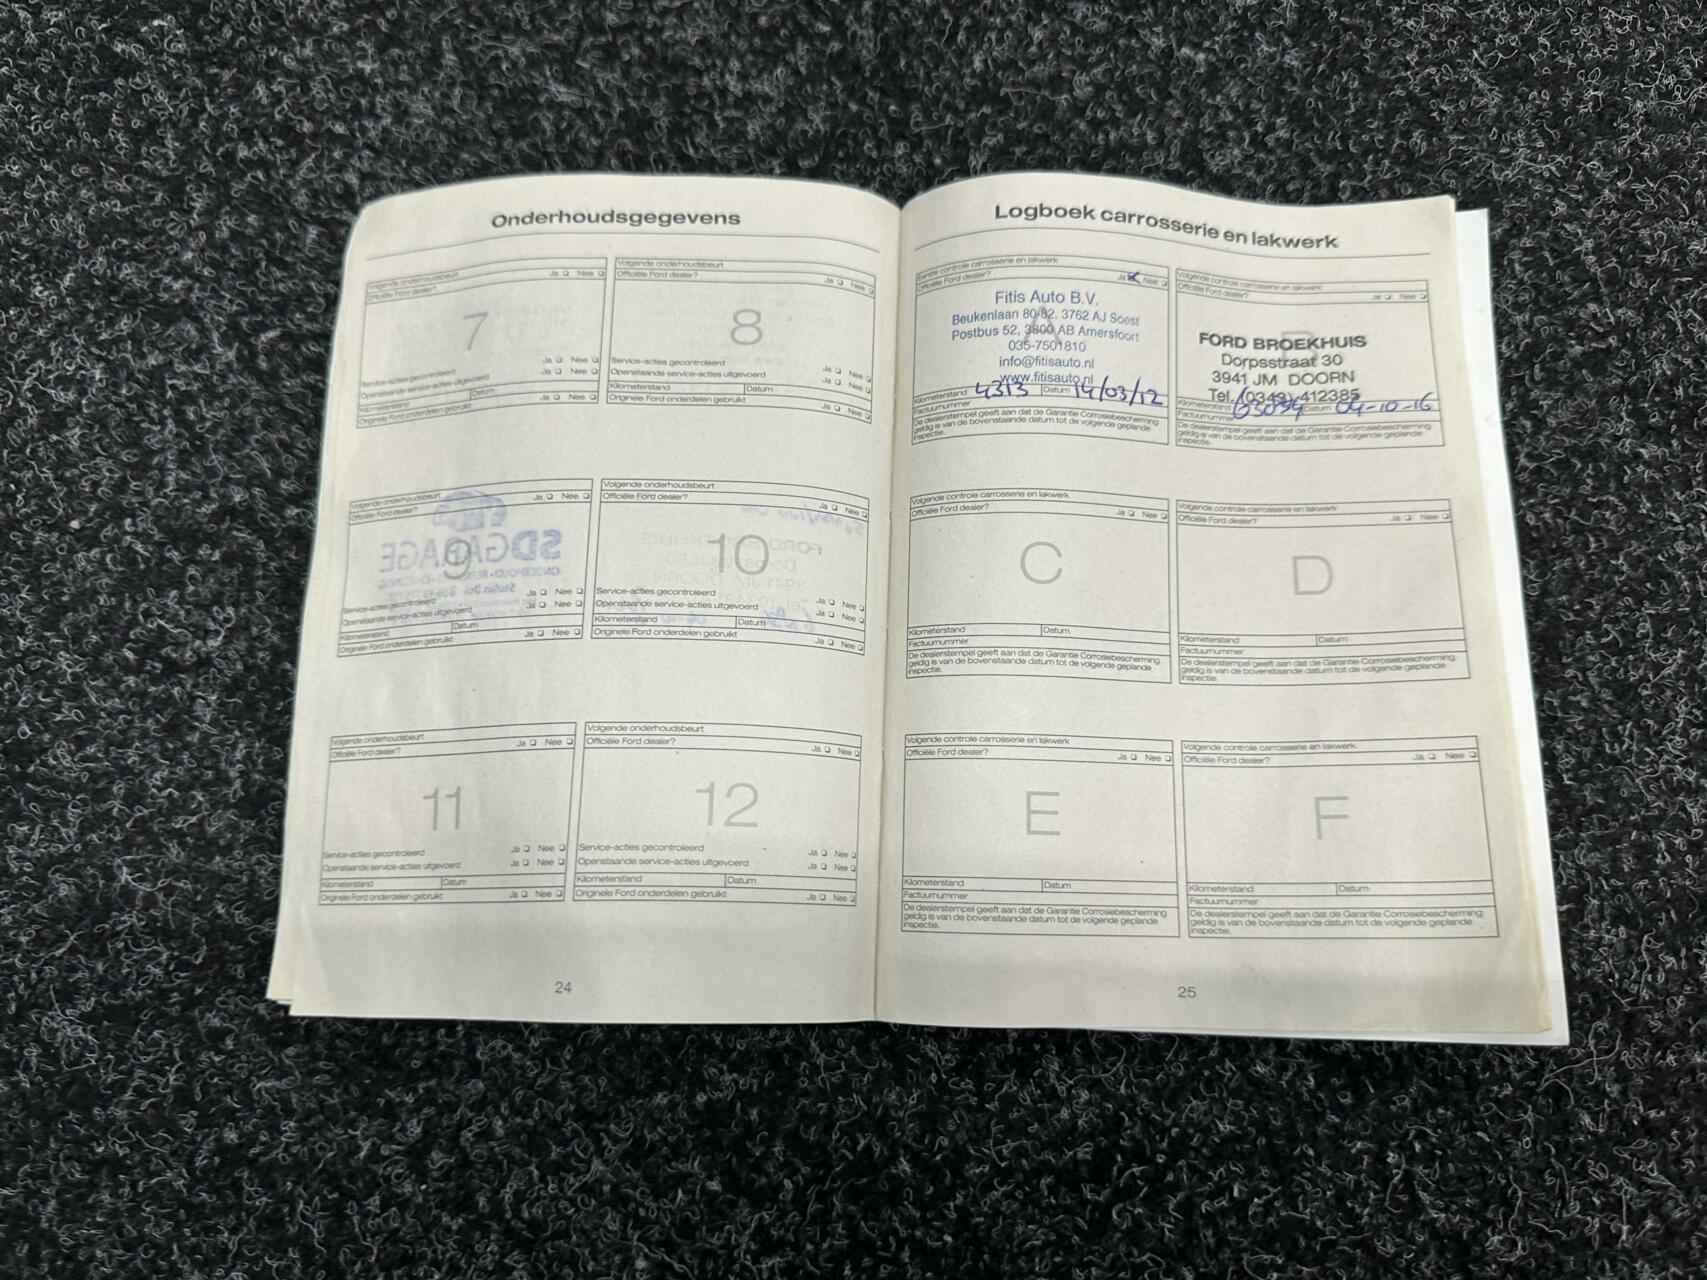 Onderhoudsgegevens
Volgende onderhoudsbeurt
Officiële Ford dealer? Ja Nee
7
Service-acties gecontroleerd Ja Nee
Openstaande service-acties uitgevoerd Ja Nee
Kilometerstand Datum
Originele Ford onderdelen gebruikt Ja Nee
Volgende onderhoudsbeurt
Officiële Ford dealer? Ja Nee
8
Service-acties gecontroleerd Ja Nee
Openstaande service-acties uitgevoerd Ja Nee
Kilometerstand Datum
Originele Ford onderdelen gebruikt Ja Nee
Volgende onderhoudsbeurt
Officiële Ford dealer? Ja Nee
9
SDGARAGE
Service-acties gecontroleerd Ja Nee
Openstaande service-acties uitgevoerd Ja Nee
Kilometerstand Datum
Originele Ford onderdelen gebruikt Ja Nee
Volgende onderhoudsbeurt
Officiële Ford dealer? Ja Nee
10
Service-acties gecontroleerd Ja Nee
Openstaande service-acties uitgevoerd Ja Nee
Kilometerstand Datum
Originele Ford onderdelen gebruikt Ja Nee
Volgende onderhoudsbeurt
Officiële Ford dealer? Ja Nee
11
Service-acties gecontroleerd Ja Nee
Openstaande service-acties uitgevoerd Ja Nee
Kilometerstand Datum
Originele Ford onderdelen gebruikt Ja Nee
Volgende onderhoudsbeurt
Officiële Ford dealer? Ja Nee
12
Service-acties gecontroleerd Ja Nee
Openstaande service-acties uitgevoerd Ja Nee
Kilometerstand Datum
Originele Ford onderdelen gebruikt Ja Nee
24
Logboek carrosserie en lakwerk
Eerste controle carrosserie en lakwerk
Officiële Ford dealer? Ja Nee
Fitis Auto B.V.
Beukenlaan 80-82, 3762 AJ Soest
Postbus 52, 3800 AB Amersfoort
035-7501810
info@fitisauto.nl
www.fitisauto.nl
Kilometerstand 4313 Datum 14/03/12
Factuurnummer
De dealerstempel geeft aan dat de Garantie Corrosiebescherming
geldig is van de bovenstaande datum tot de volgende geplande
inspectie.
Volgende controle carrosserie en lakwerk
Officiële Ford dealer? Ja Nee
B
FORD BROEKHUIS
Dorpsstraat 30
3941 JM DOORN
Tel. (0343) 412385
Kilometerstand Datum 04-10-16
Factuurnummer
De dealerstempel geeft aan dat de Garantie Corrosiebescherming
geldig is van de bovenstaande datum tot de volgende geplande
inspectie.
Volgende controle carrosserie en lakwerk
Officiële Ford dealer? Ja Nee
C
Kilometerstand Datum
Factuurnummer
De dealerstempel geeft aan dat de Garantie Corrosiebescherming
geldig is van de bovenstaande datum tot de volgende geplande
inspectie.
Volgende controle carrosserie en lakwerk
Officiële Ford dealer? Ja Nee
D
Kilometerstand Datum
Factuurnummer
De dealerstempel geeft aan dat de Garantie Corrosiebescherming
geldig is van de bovenstaande datum tot de volgende geplande
inspectie.
Volgende controle carrosserie en lakwerk
Officiële Ford dealer? Ja Nee
E
Kilometerstand Datum
Factuurnummer
De dealerstempel geeft aan dat de Garantie Corrosiebescherming
geldig is van de bovenstaande datum tot de volgende geplande
inspectie.
Volgende controle carrosserie en lakwerk
Officiële Ford dealer? Ja Nee
F
Kilometerstand Datum
Factuurnummer
De dealerstempel geeft aan dat de Garantie Corrosiebescherming
geldig is van de bovenstaande datum tot de volgende geplande
inspectie.
25